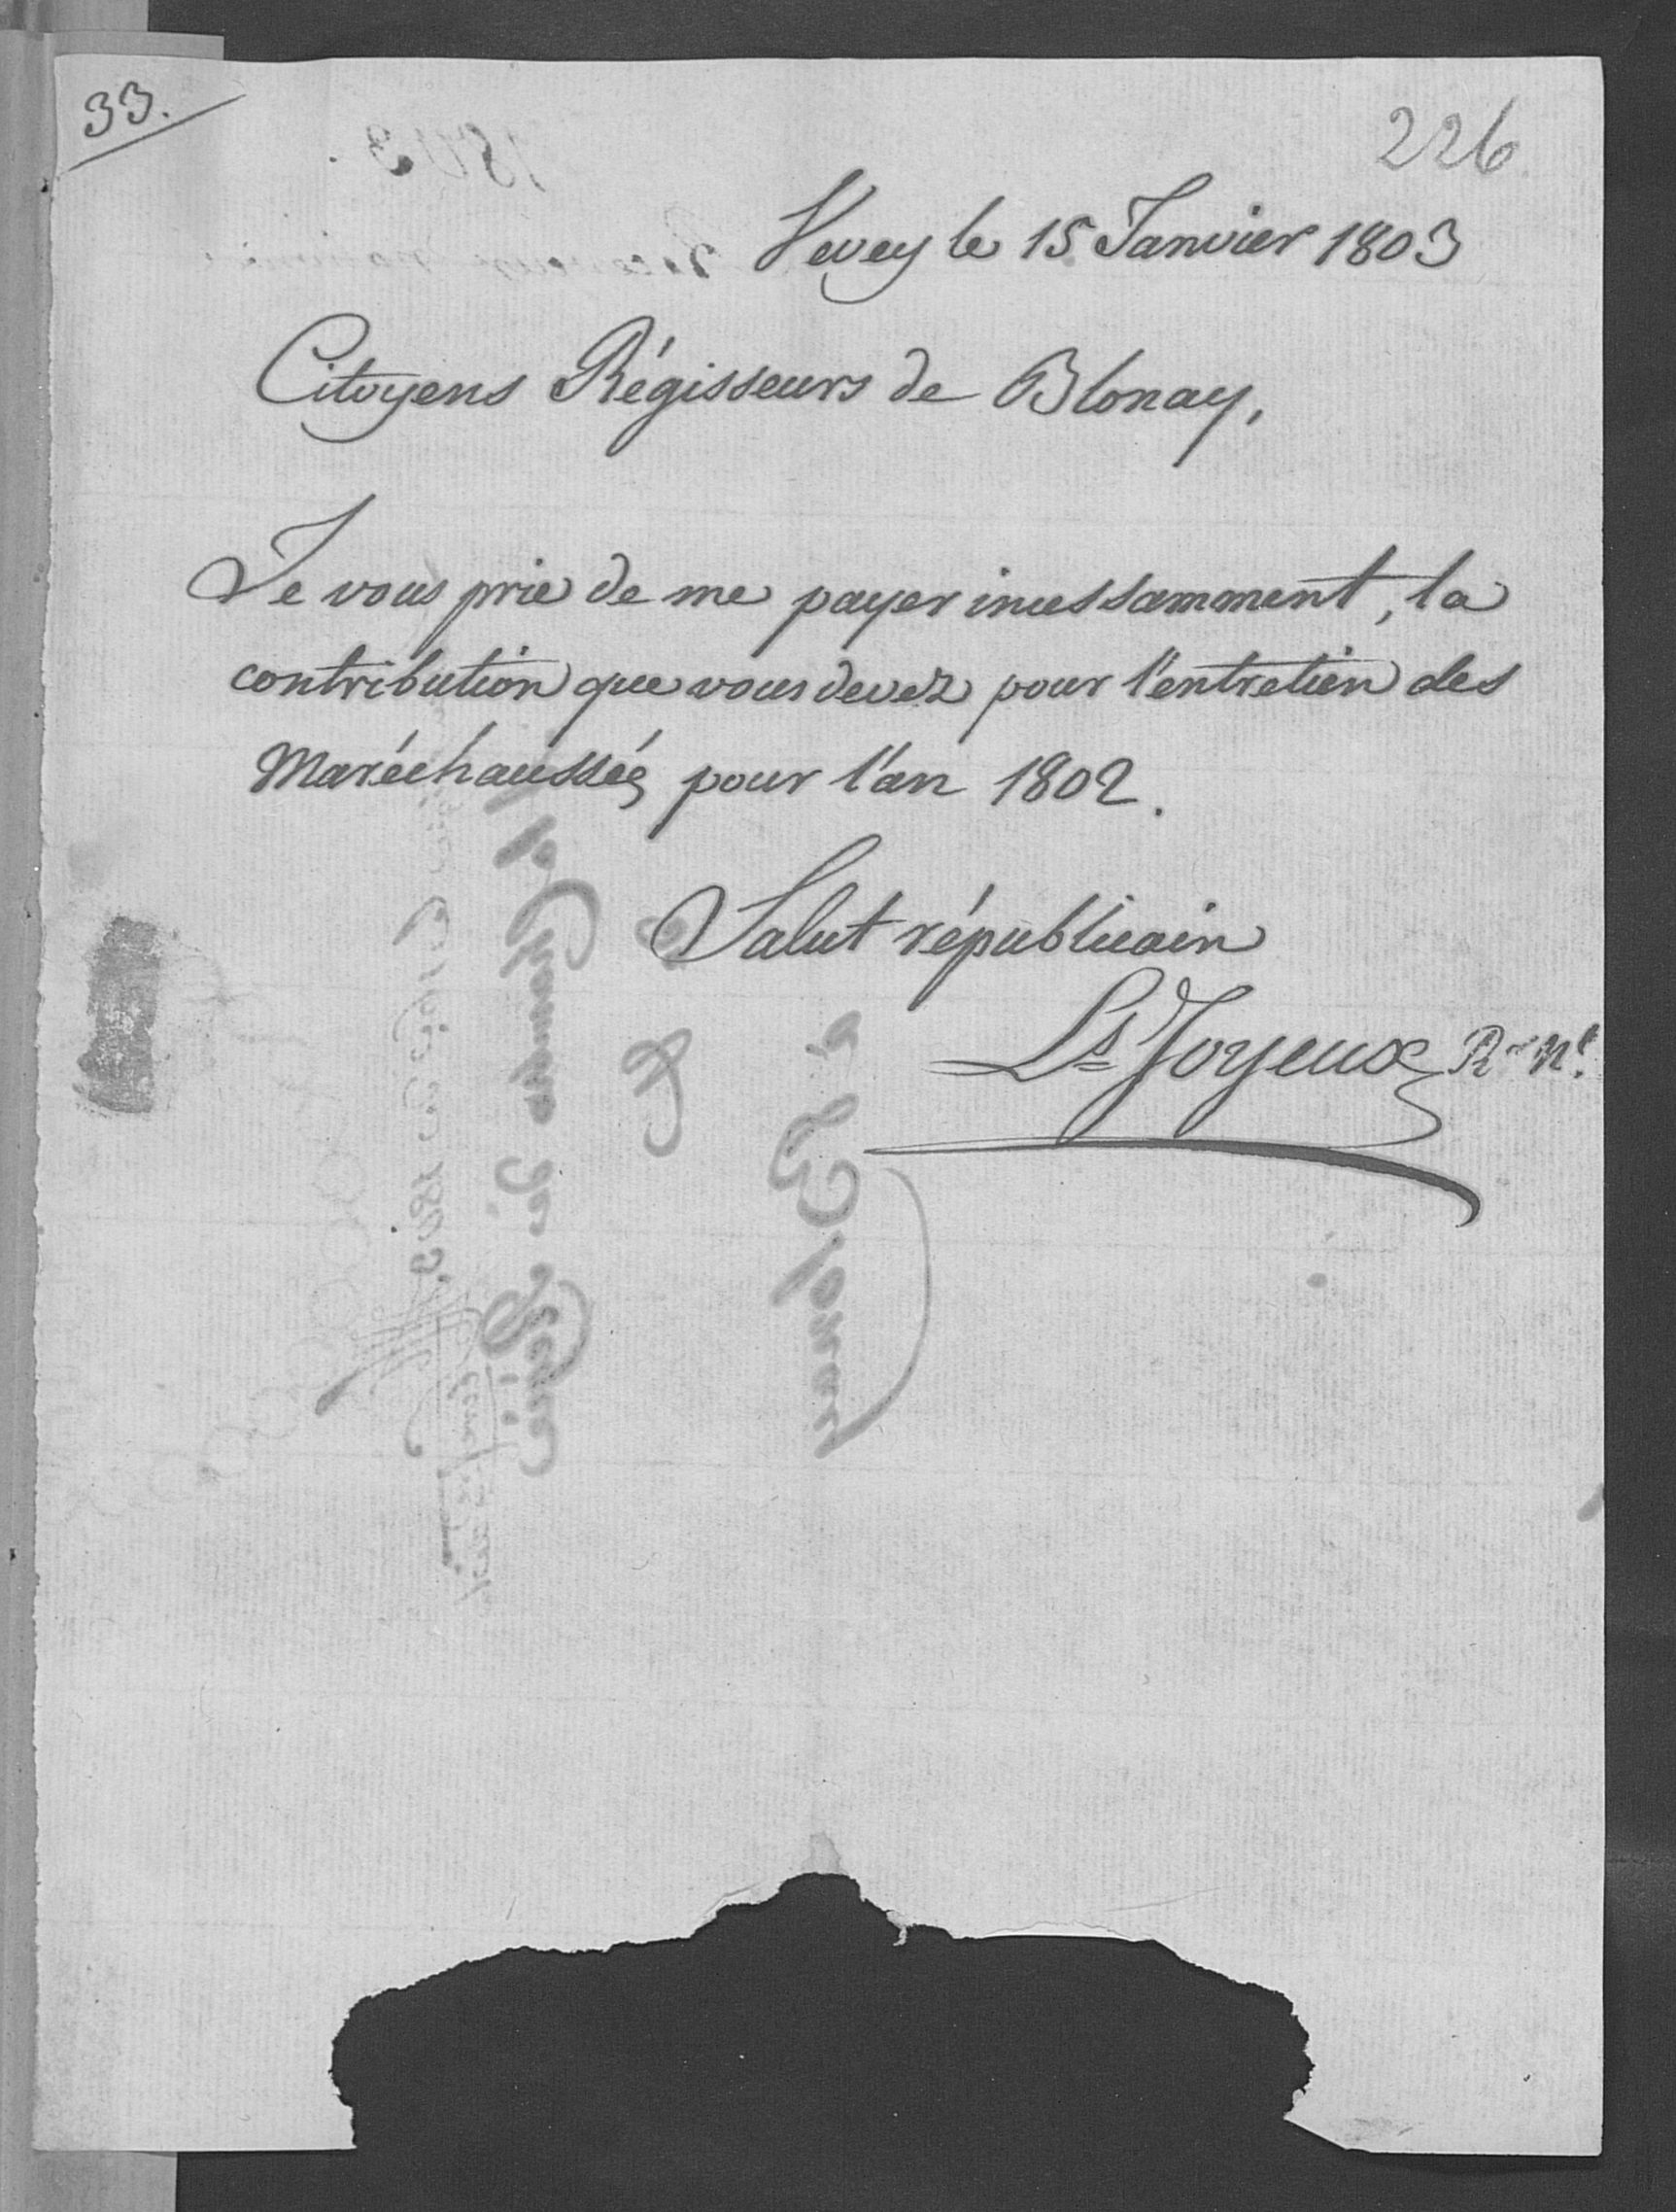 33.
226
Vevey le 15 Janvier 1803
Citoyens Régisseurs de Blonay,
Je vous prie de me payer incessamment, la
contribution que vous devez pour l'entretien des
Maréchaussées pour l'an 1802.
Salut républicain
Ls Joyeux Rr Nl.